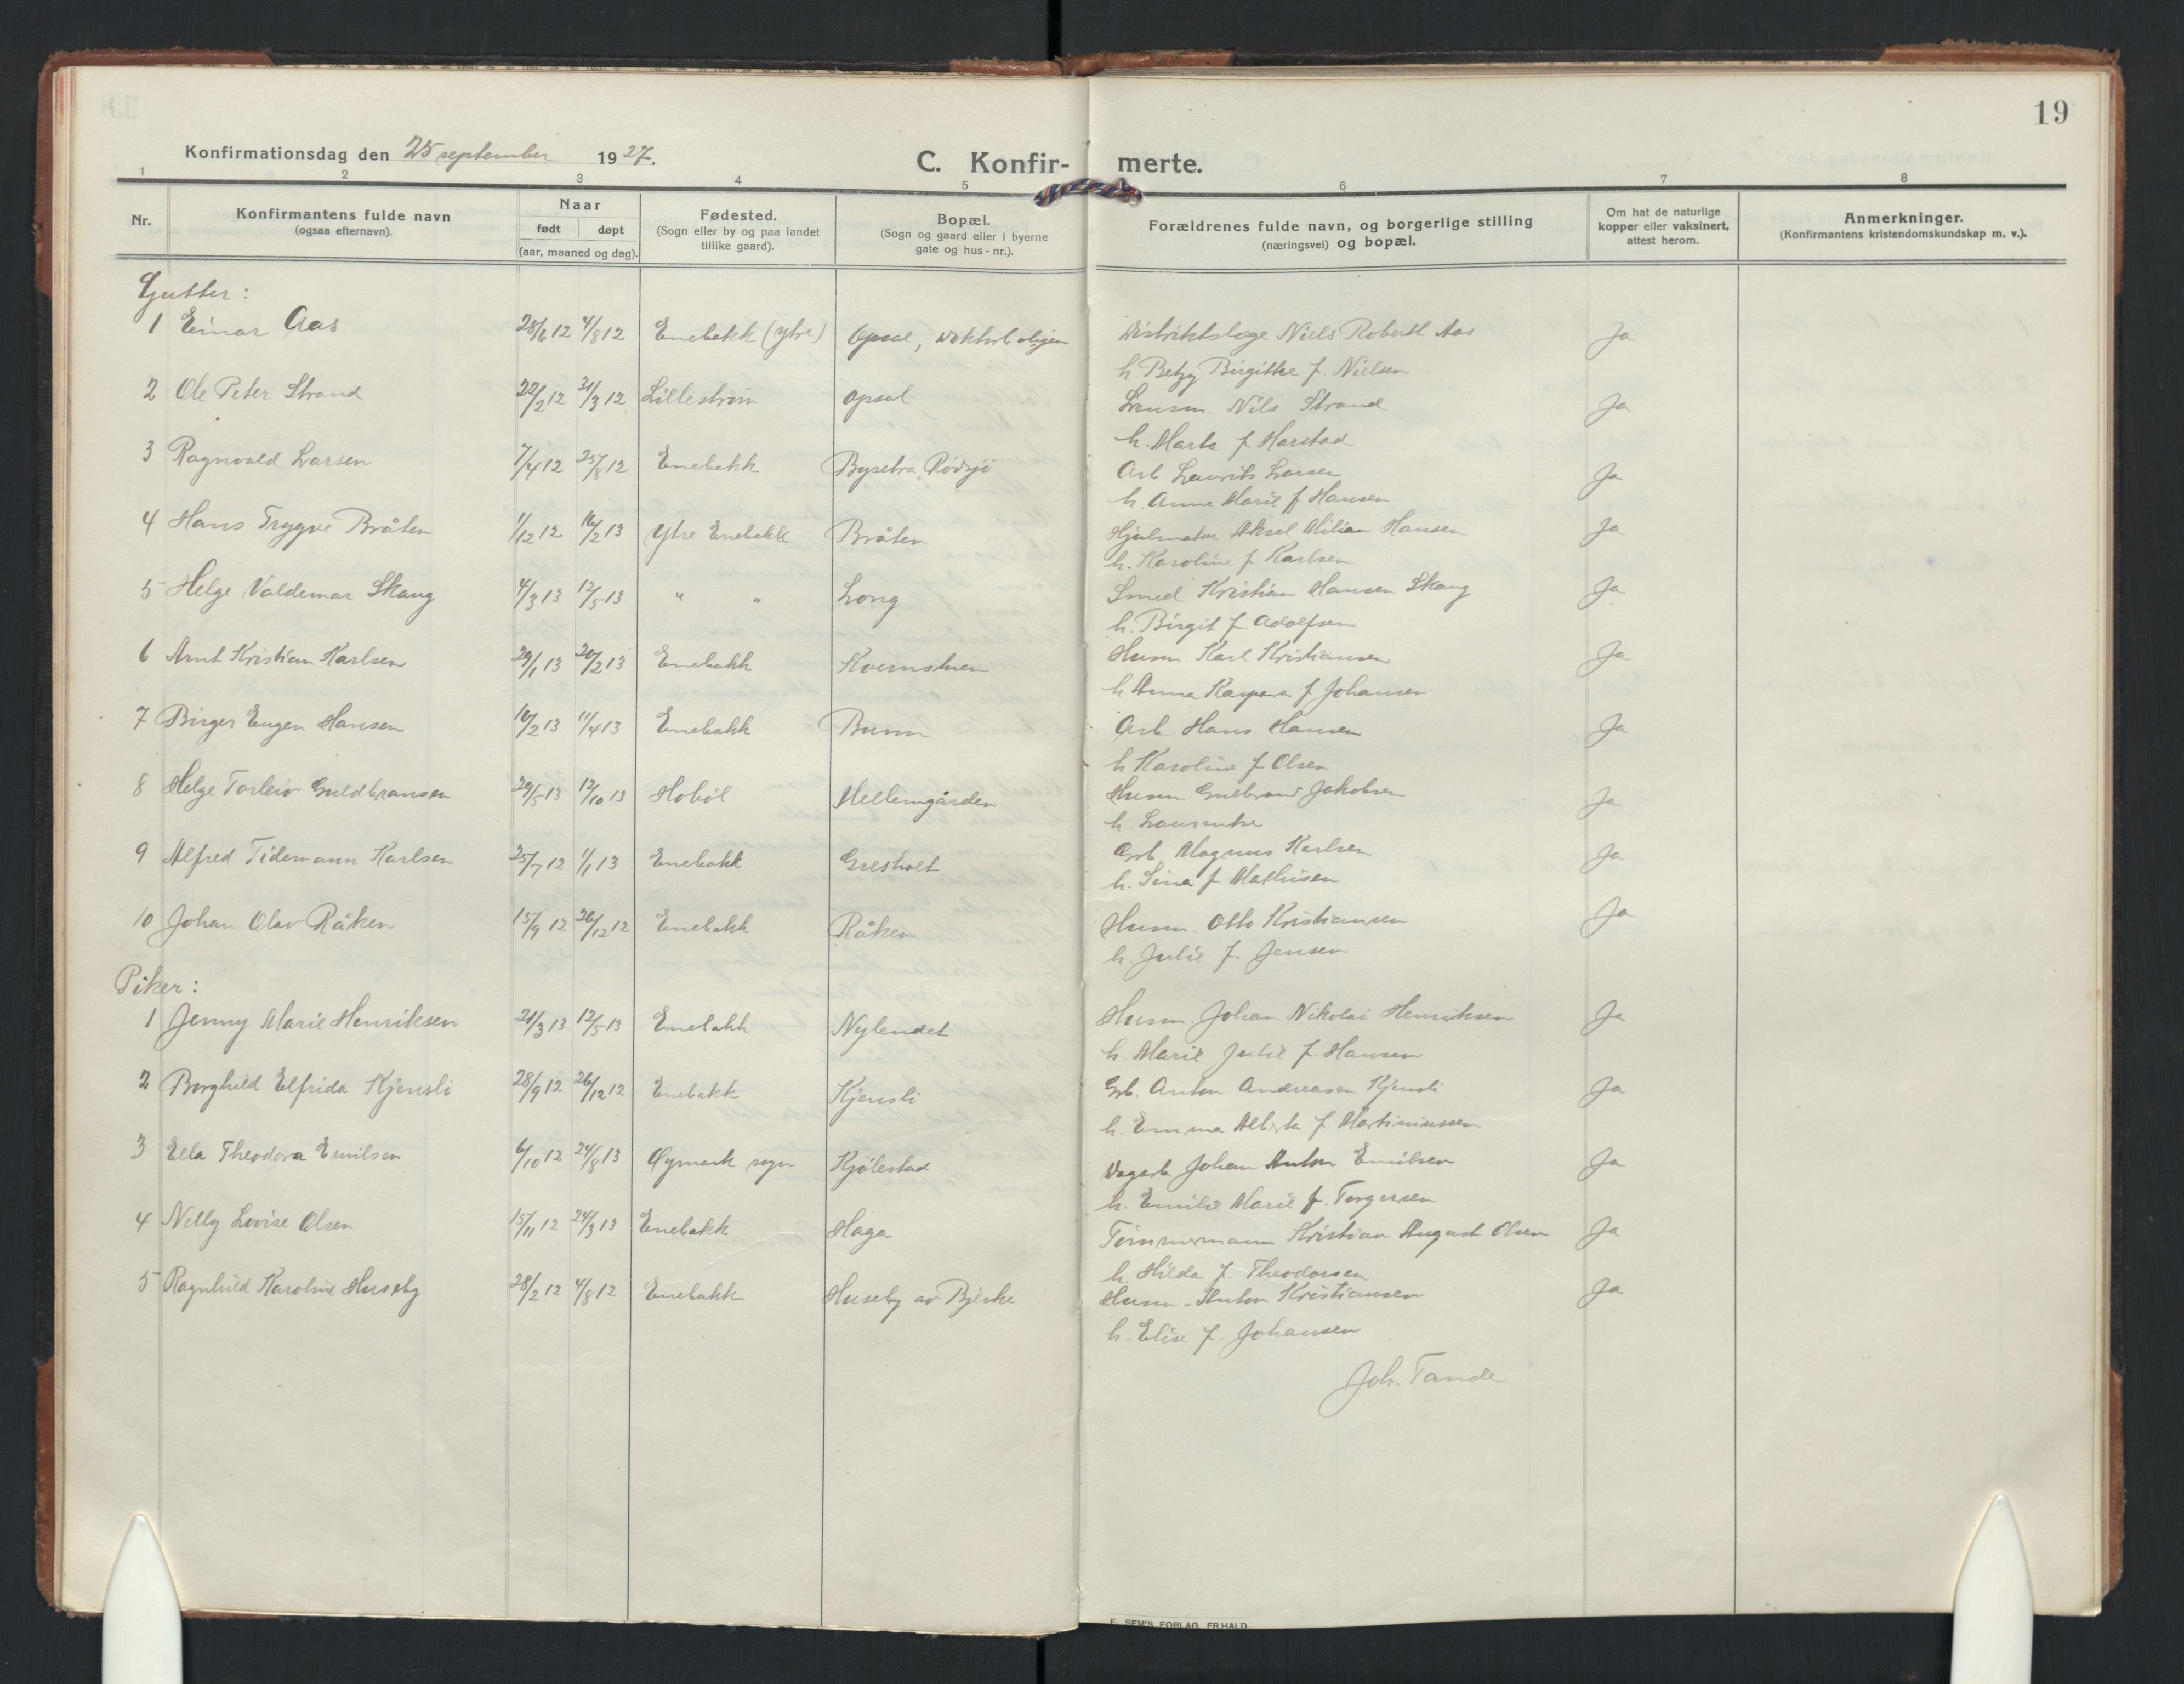 19
Konfirmationsdag den 25 september 1927.
C. Konfir- merte.
1 2 3 4 5 6 7 8
Nr.
Konfirmantens fulde navn
(ogsaa efternavn).
Naar
født døpt
(aar, maaned og dag).
Fødested.
(Sogn eller by og paa landet
tillike gaard).
Bopæl.
(Sogn og gaard eller i byerne
gate og hus-nr.).
Forældrenes fulde navn, og borgerlige stilling
(næringsvei) og bopæl.
Om hat de naturlige
kopper eller vaksinert,
attest herom.
Anmerkninger.
(Konfirmantens kristendomskundskap m. v.).
Gutter:
1 Einar Aas 28/6 12 4/8 12 Enebakk (ytre) Opsal, Doktorboligen Distriktslæge Niels Robertl Aas Ja
h Betzy Birgitte f. Nielsen
2 Ole Peter Strand 22/2 12 31/3 12 Lillestrøm Opsal Lensm. Nils Strand Ja
h. Marta f Harstad
3 Ragnvald Larsen 7/4 12 25/8 12 Enebakk Bysetra Rödsjö Arb Laurits Larsen Ja
h. Anne Marie f Hansen
4 Hans Trygve Bråten 1/12 12 16/2 13 Ytre Enebakk Bråten Aksel Milian Hansen Ja
h. Karoline f. Karlsen
5 Helge Valdemar Skaug 4/3 13 12/5 13 " " Long Smed Kristian Hansen Skaug Ja
h. Birgit f. Adolfsen
6 Arnt Kristian Karlsen 29/1 13 20/2 13 Enebakk Kvernstuen Husm. Karl Kristiansen Ja
h Anna Kaspara f Johansen
7 Birger Eugen Hansen 10/2 13 11/4 13 Enebakk Bunn Arb Hans Hansen Ja
h Karoline f. Olsen
8 Helge Torleiv Guldbransen 29/5 13 12/10 13 Hobøl Mellemgården Husm Gulbrand Jakobsen Ja
h. Laurentse
9 Alfred Tidemann Karlsen 25/7 12 1/1 13 Enebakk Gresholt Grb. Magnus Karlsen Ja
h. Sina f Mathisen
10 Johan Olav Råken 15/9 12 26/12 12 Enebakk Råken Husm. Otto Kristiansen Ja
h. Julie f. Jensen
Piker:
1 Jenny Marie Henriksen 21/3 13 12/5 13 Enebakk Nylendet Husm. Johan Nikolai Henriksen Ja
h. Marie Julie f. Hansen
2 Borghild Elfrida Kjensli 28/9 12 26/12 12 Enebakk Kjensli Grb. Anton Andreasen Kjensli Ja
h. Emma Alberta f Martiniussen
3 Ella Theodora Emilsen 6/10 12 24/8 13 Øymark sogn Kjölestad Johan Anton Emilsen Ja
h. Emilie Marie f. Torgersen
4 Nelly Lovise Olsen 15/11 12 24/3 13 Enebakk Haga Tömmermann Kristian August Olsen Ja
h. Hilda f. Theodorsen
5 Ragnhild Karoline Huseby 28/2 12 4/8 12 Enebakk Huseby av Bjerke Husm. Anton Kristiansen Ja
h. Elise f. Johansen
Joh. Tande
E. SEM'S FORLAG, FR.HALD.